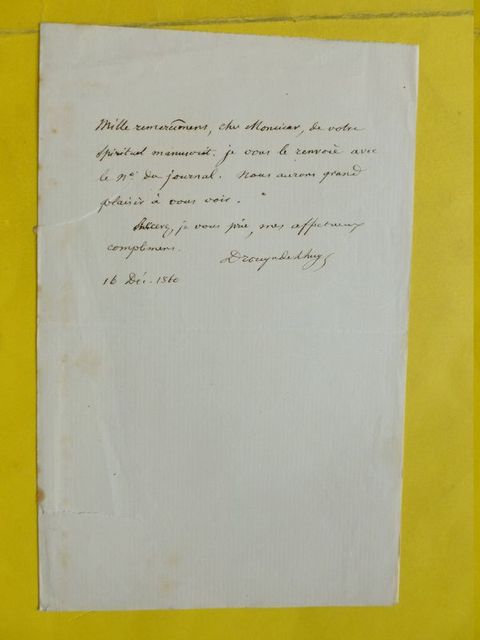 Mille remercîmens, cher Monsieur, de votre
spirituel manuscrit. je vous le renvoie avec
le No. du journal. Nous aurons grand
plaisir à vous voir.
Agréez, je vous prie, mes affectueux
complimens.
Drouyn de Lhuys
16 Déc. 1860